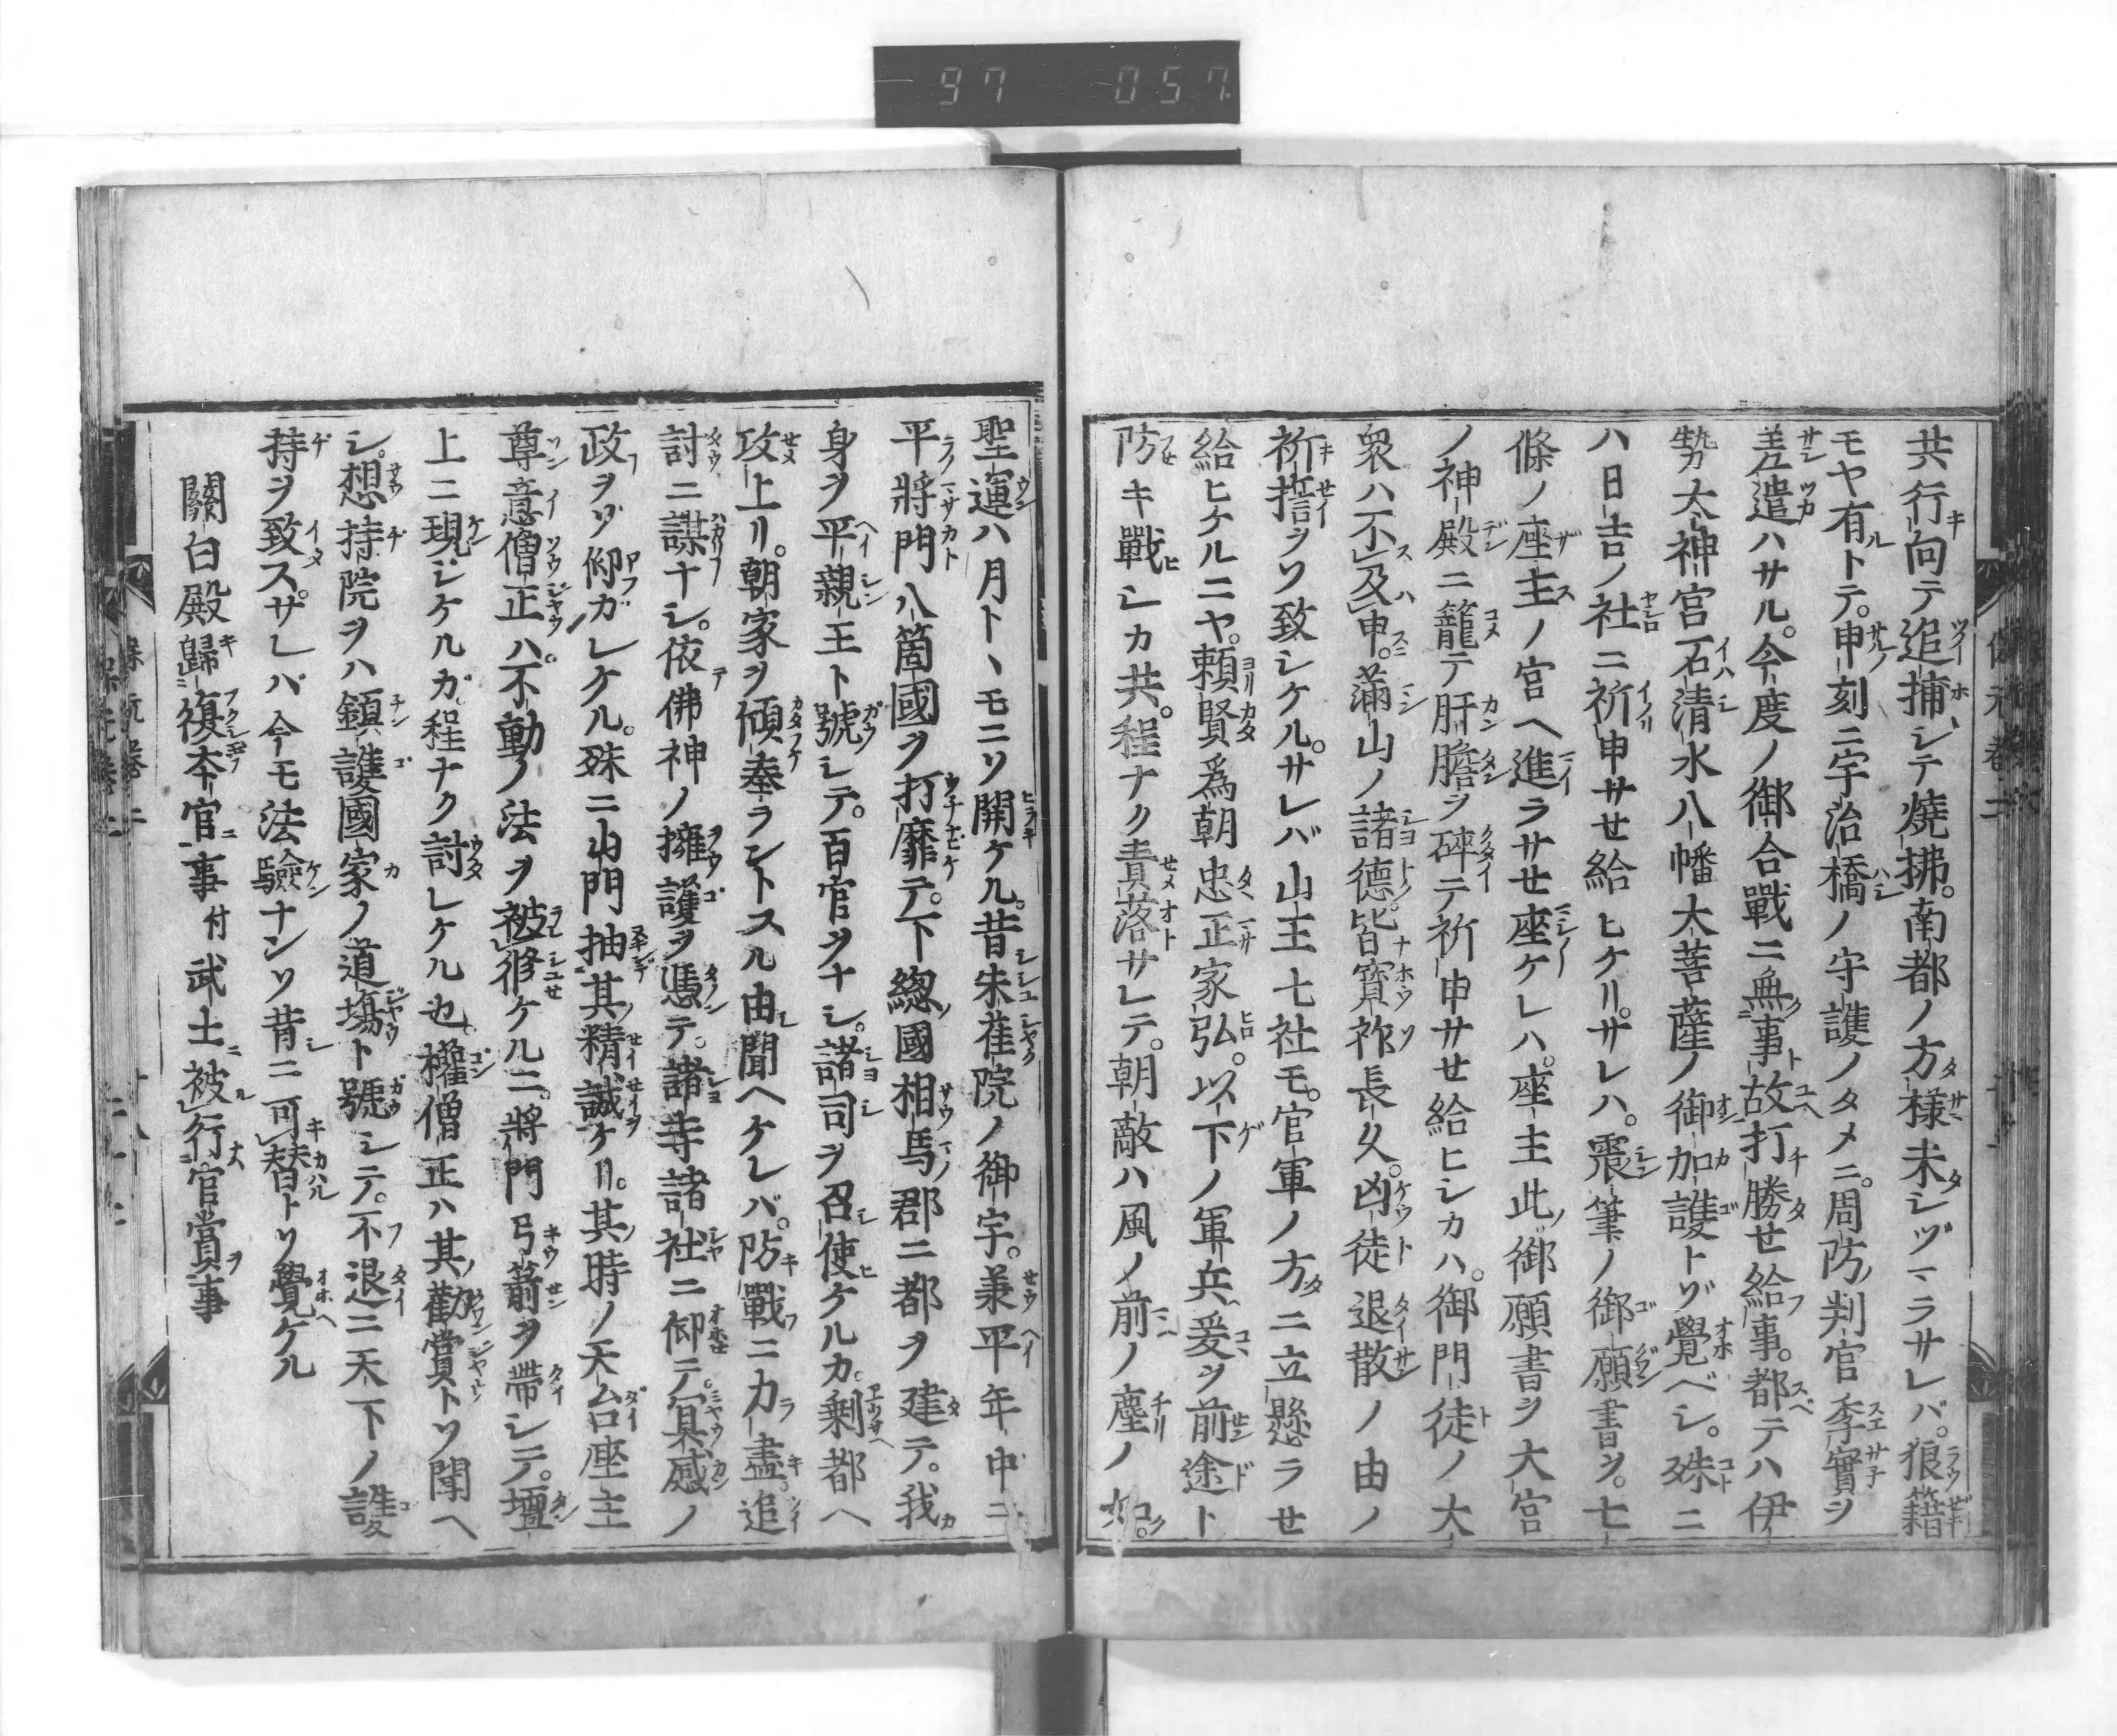 97 057
共行向テ追捕シテ燒拂。南都ノ方樣未シヅマラサレバ。狼籍
モヤ有トテ。申刻ニ宇治橋ノ守護ノタメニ。周防判官季實ヲ
差遣ハサル。今度ノ御合戰ニ無事故打勝せ給事。都テハ伊
勢太神宮石清水八幡大菩薩ノ御加護トゾ覺ベシ。殊ニ
ハ日吉ノ社ニ祈申サせ給ヒケリ。サレハ。震筆ノ御願書ヲ。七
條ノ座主ノ宮へ進ラサせ座ケレハ。座主此御願書ヲ大宮
ノ神殿ニ籠テ肝膽ヲ碎テ祈申サせ給ヒシカハ。御門徒ノ大
衆ハ不及申。滿山ノ諸德皆寳祚長久。凶徒退散ノ由ノ
祈誓ヲソ致シケル。サレバ山王七社モ。官軍ノ方ニ立懸ラせ
給ヒケルニヤ。頼賢爲朝忠正家弘。以下ノ軍兵爰ヲ前途ト
防キ戰シカ共。程ナク責落サレテ。朝敵ハ風ノ前ノ塵ノ如。
聖運ハ月トヽモニソ開ケル。昔朱雀院ノ御宇。兼平年中ニ
平將門八箇國ヲ打靡テ。下總國相馬郡ニ都ヲ建テ。我
身ヲ平親王ト號シテ。百官ヲナシ。諸司ヲ召使ケルカ。剩都へ
攻上リ。朝家ヲ傾奉ラントスル由聞ヘケレバ。防戰ニカラ盡追
討ニ謀ナシ。依佛神ノ擁護ヲ憑テ。諸寺諸社ニ仰テ。冥感ノ
政ヲゾ仰ガレケル。殊ニ山門抽其精誠ケリ。其時ノ天台座主
尊意僧正ハ。不動ノ法ヲ被修ケルニ。將門弓箭ヲ帶シテ。壇
上ニ現ジケルカ。程ナク討レケル也。權僧正ハ其勸賞トソ聞へ
シ。想持院ヲハ鎮護國家ノ道塲ト號シテ。不退ニ天下ノ護
持ヲ致ス。サレバ今モ法驗ナンソ昔ニ可替トソ覺ケル
關白殿歸復本官事付武士被行官賞事